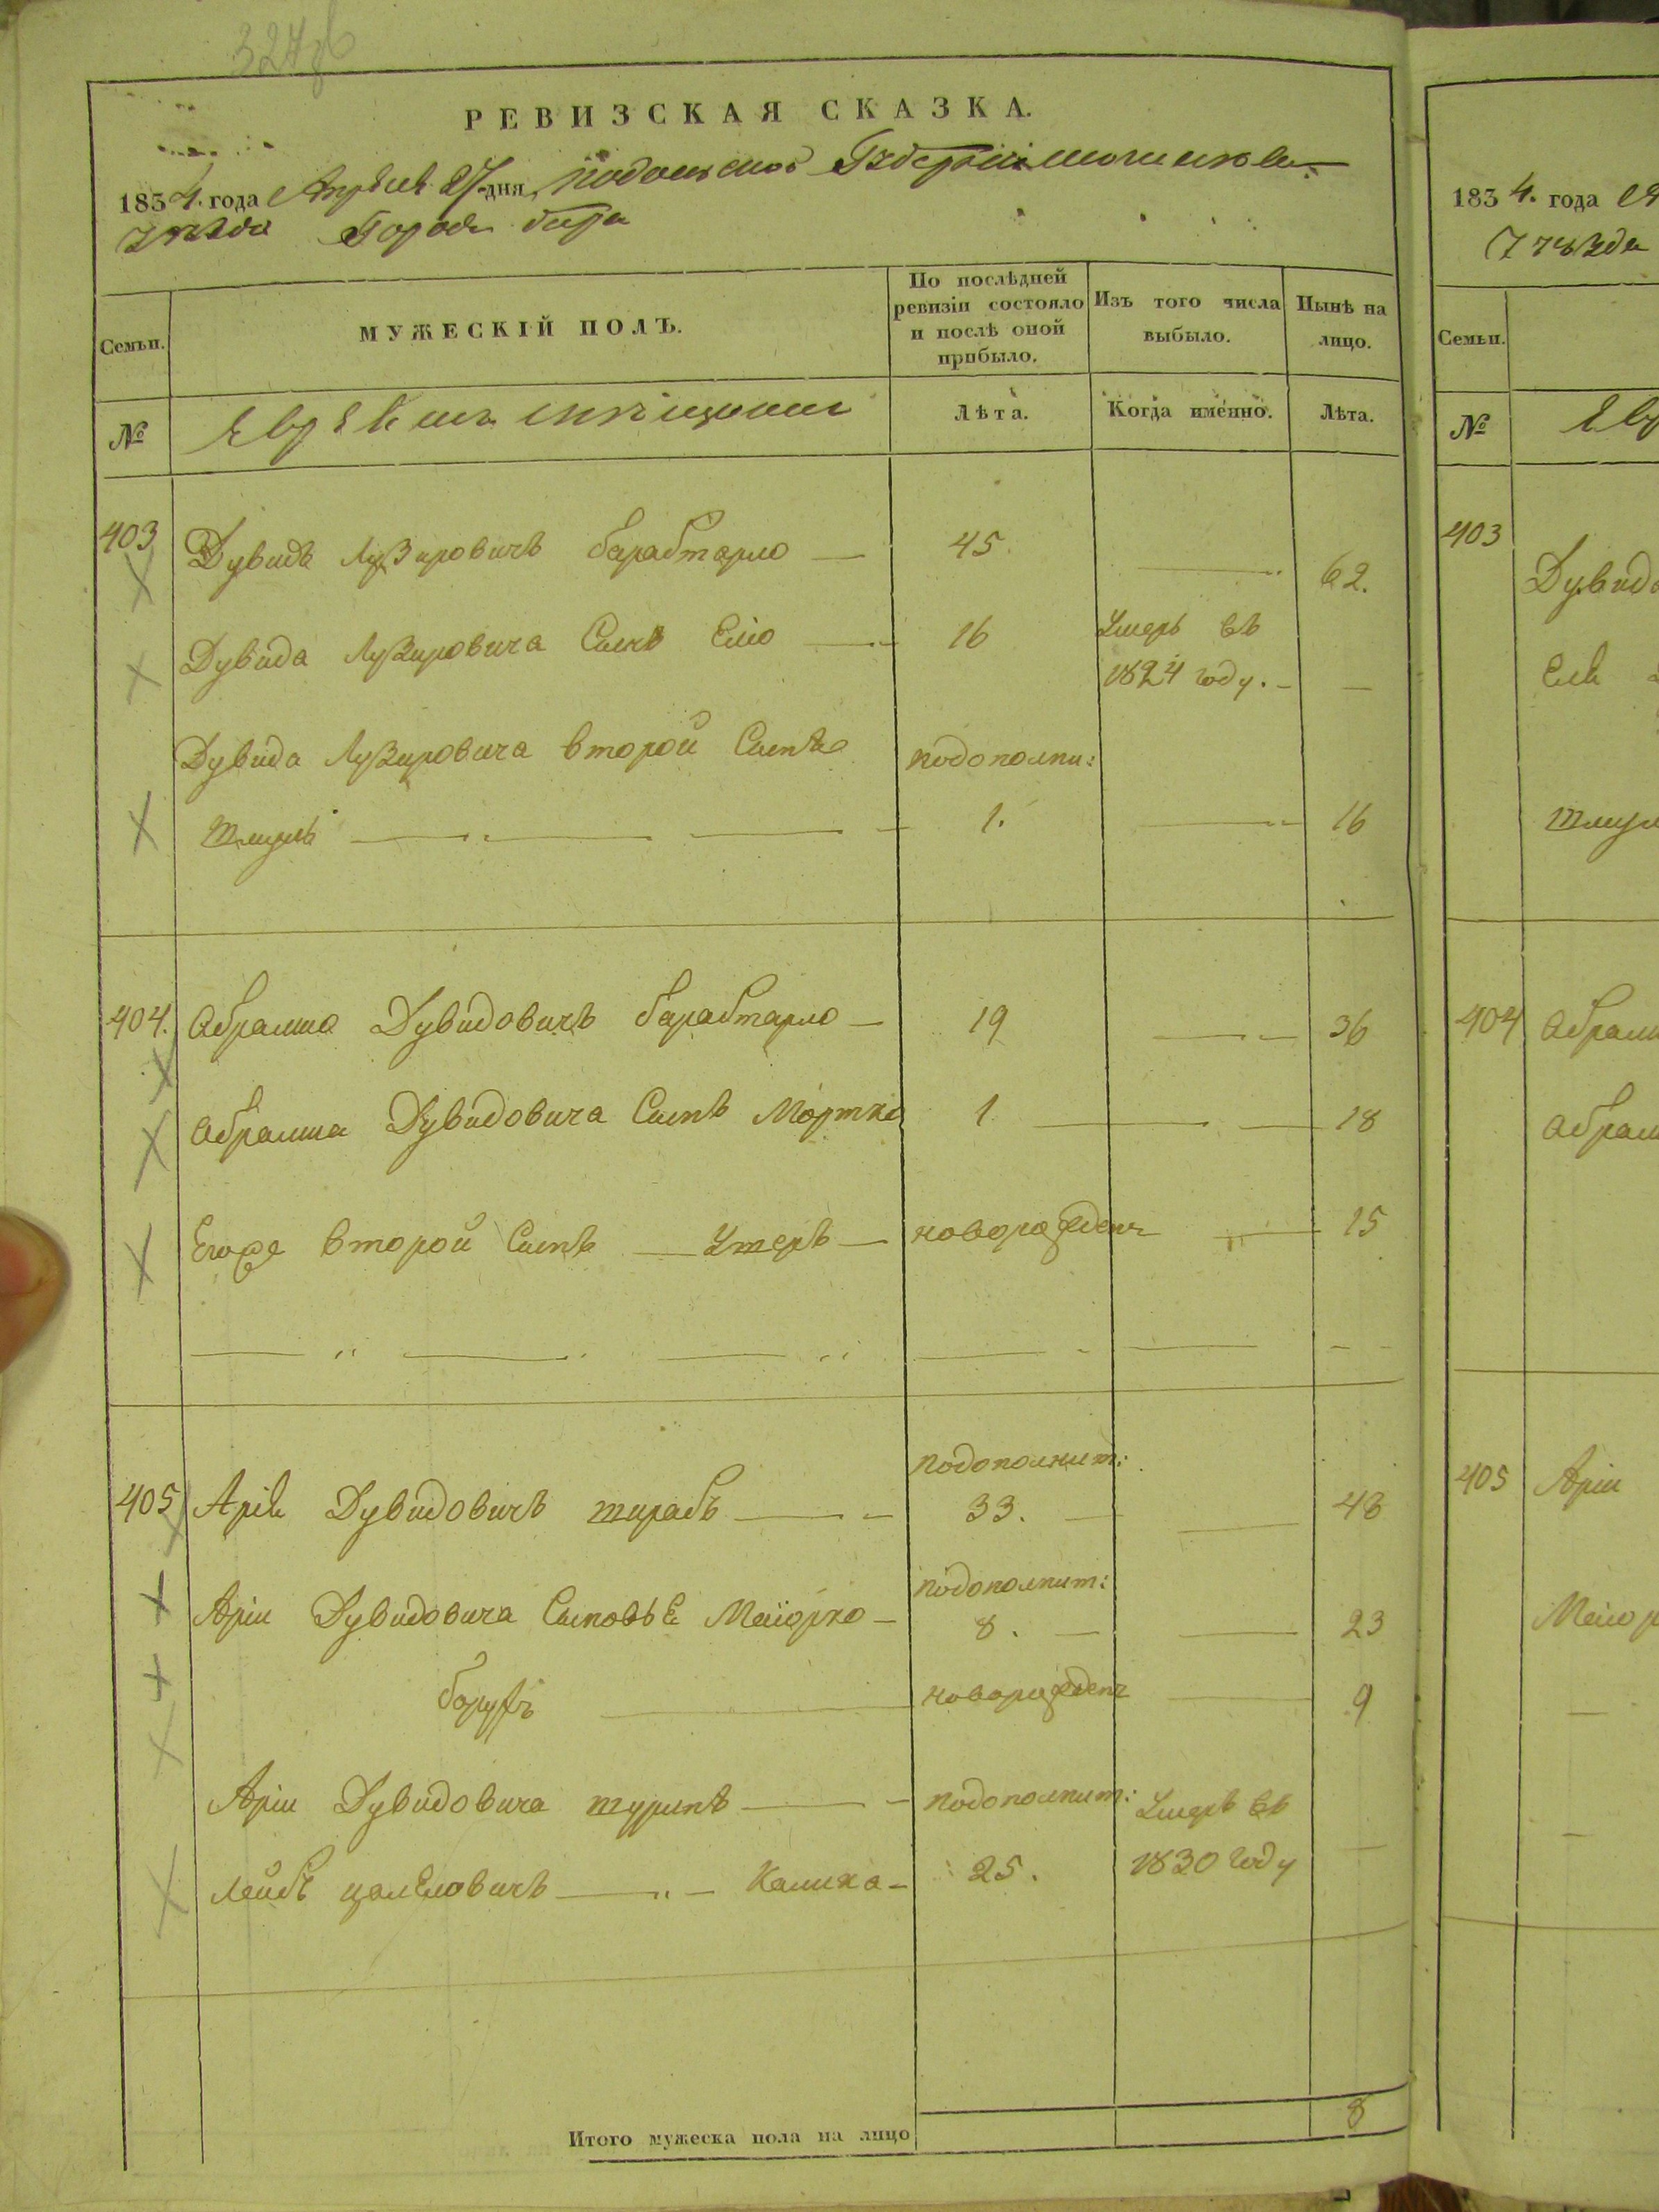 327об
РЕВИЗСКАЯ СКАЗКА.
1834. года Апреля 27 дня, Подольской Губернии
уезда Города бара
Семьи.
МУЖЕСКІЙ ПОЛЪ.
По послѣдней ревизіи состояло и послѣ оной прибыло.
Изъ того числа выбыло.
Нынѣ на лицо.
№
Лѣта.
Когда именно.
Лѣта.
403 Дувидъ Лузировичъ барабтарло — 45. — 62.
Дувида Лузировича Сынъ Елio — 16 Умеръ въ
1824 году. — —
Дувида Лузировича второй Сынъ подополни:
Шмуль — 1. — 16
404. Абрамко Дувидовичъ барабтарло — 19 — 36
Абрамка Дувидовича Сынъ Мортко 1 — 18
Егоже второй Сынъ — новорожденъ — 15
подополнит:
405 Арiя Дувидовичъ — 33. — 48
подополнит:
Арiи Дувидовича Сыновья Маiорко — 8. — 23
борухъ — новорожденъ — 9
Арiи Дувидовича шуринъ — подополнит: Умеръ въ
Лейбъ — 25. 1830 году —
Итого мужеска пола на лицо 8
1834. года
уезда
Семьи.
№
Евр
403
Дувид
Шмул
404 Абрам
Абрам
405 Арiи
Маiор